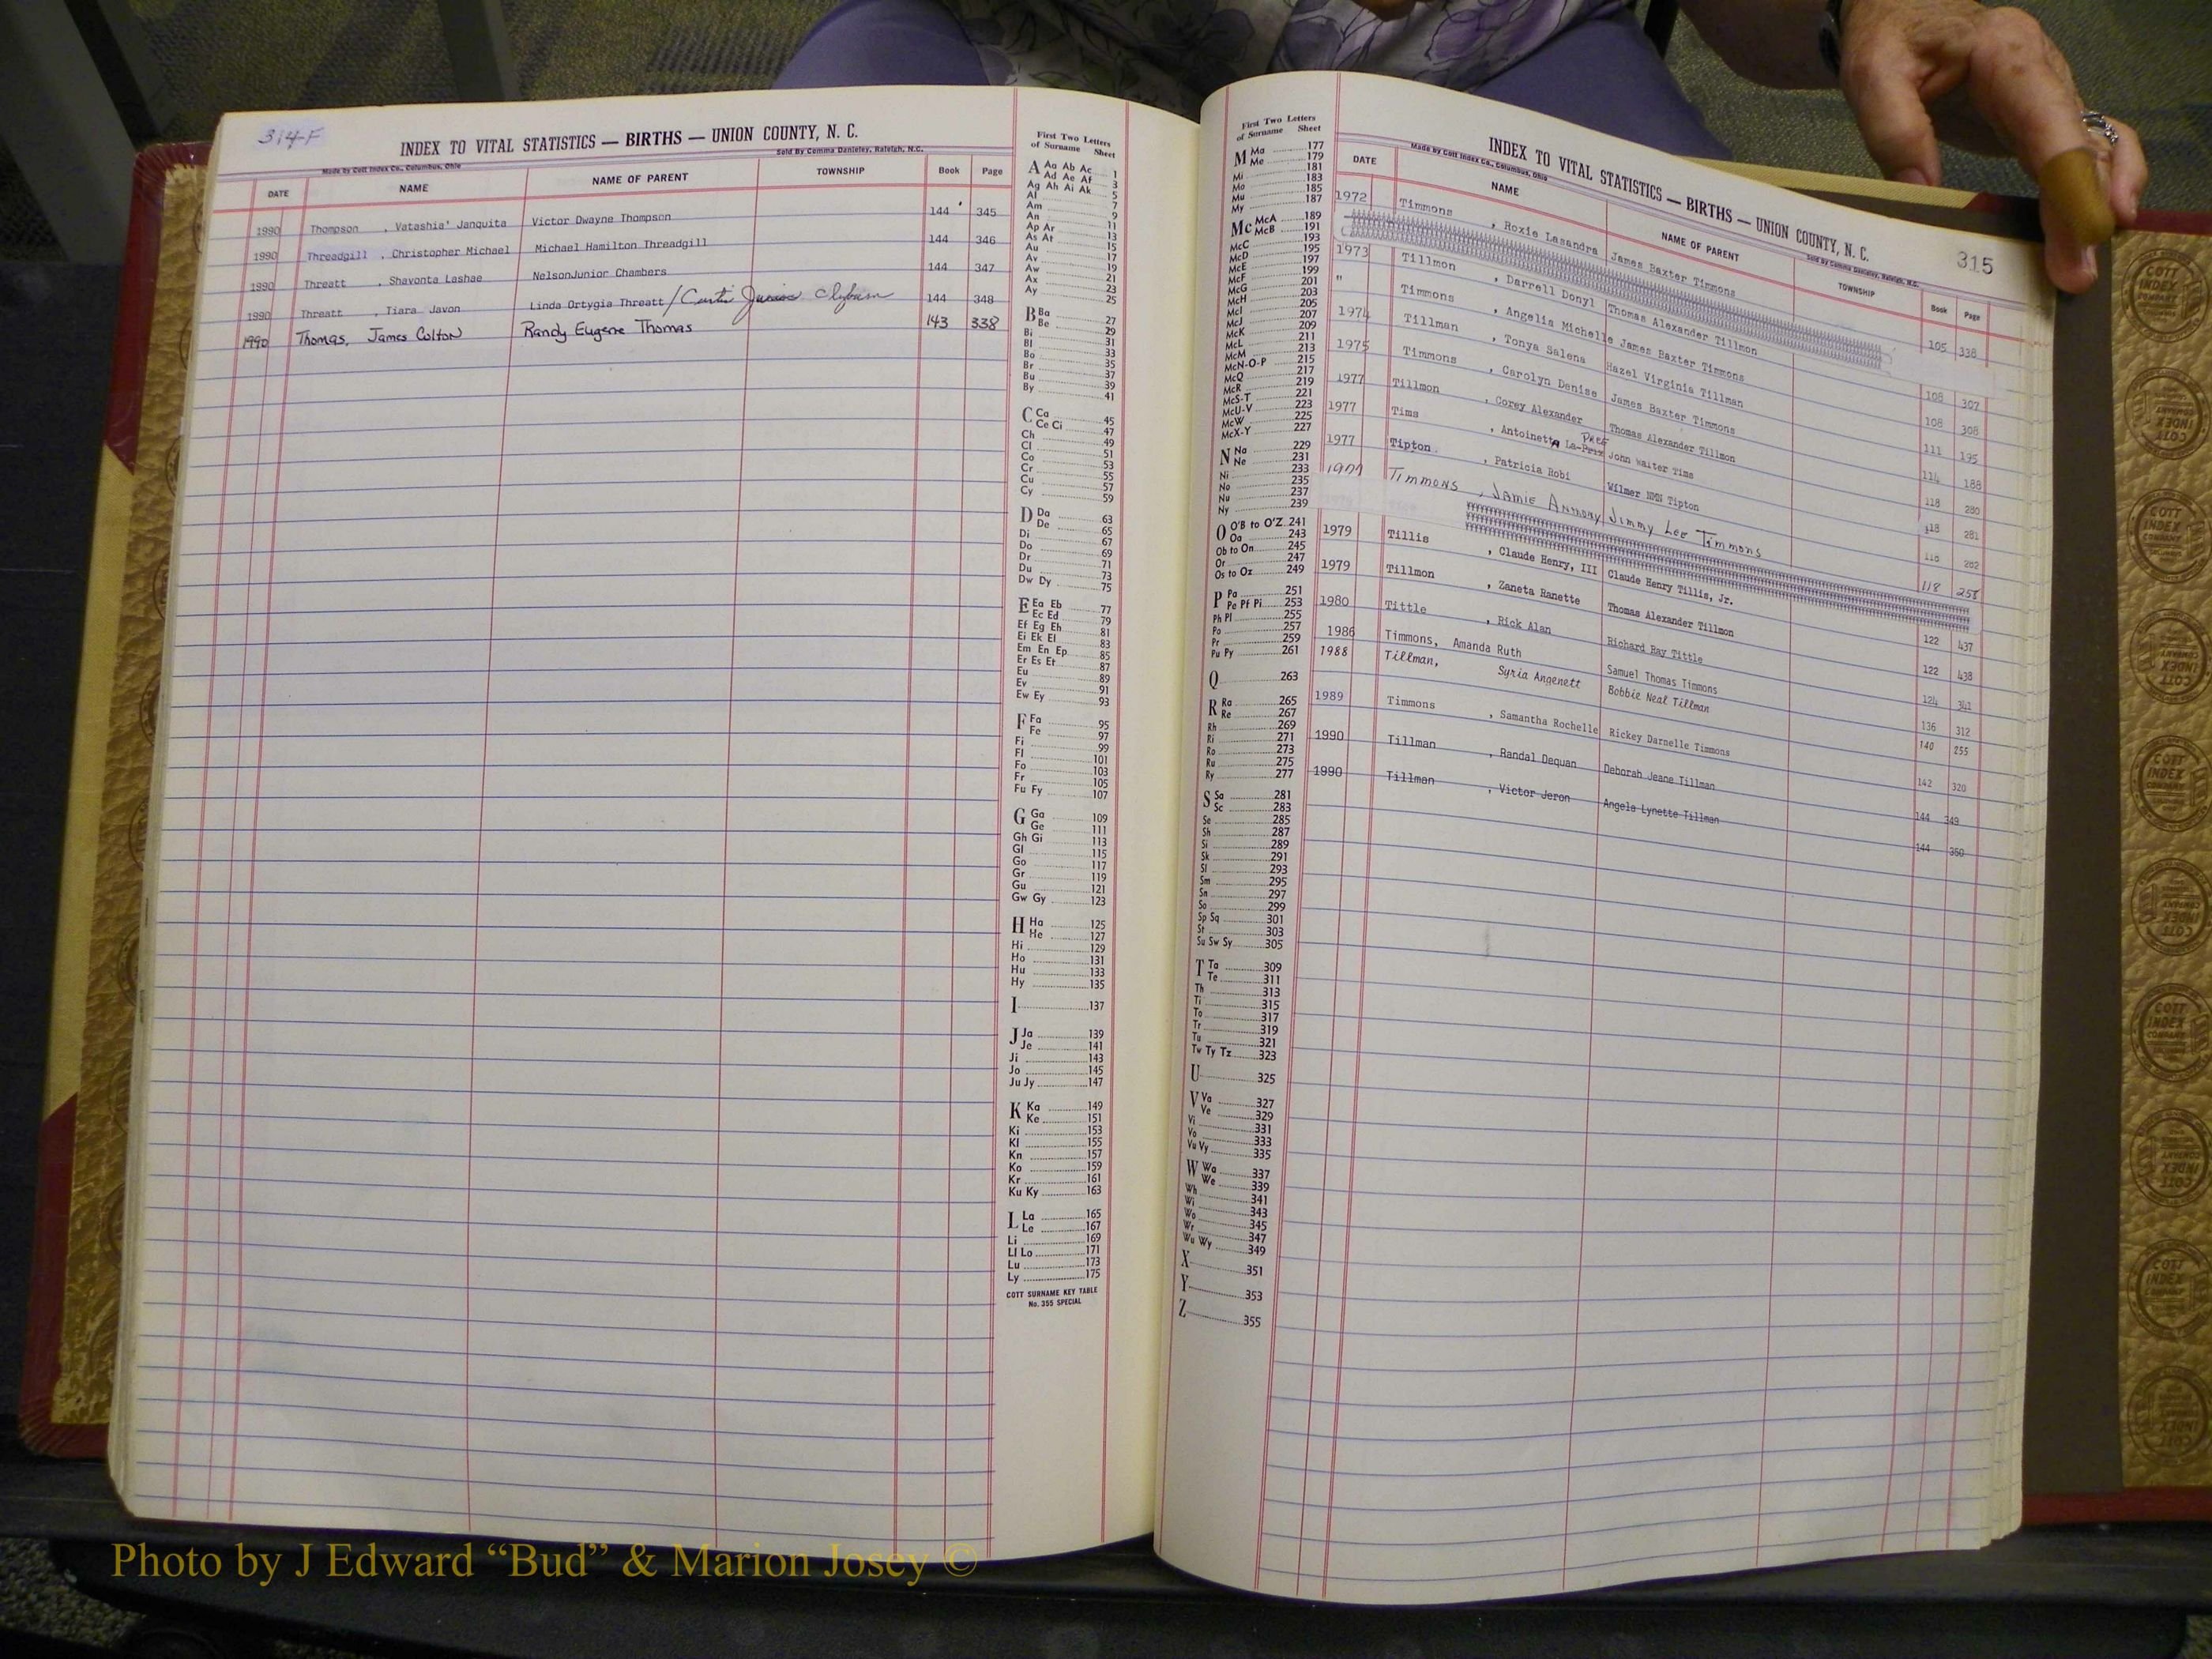 314-F
INDEX TO VITAL STATISTICS — BIRTHS — UNION COUNTY, N. C.
Made by Cott Index Co., Columbus, Ohio Sold by Comma Danieley, Raleigh, N.C.
DATE NAME NAME OF PARENT TOWNSHIP Book Page
1990 Thompson , Vatashia' Janquita Victor Dwayne Thompson 144 345
1990 Threadgill , Christopher Michael Michael Hamilton Threadgill 144 346
1990 Threatt , Shavonta Lashae NelsonJunior Chambers 144 347
1990 Threatt , Tiara Javon Linda Ortygia Threatt / Curtis Junior Clyburn 144 348
1990 Thomas, James Colton Randy Eugene Thomas 143 338
First Two Letters
of Surname Sheet
A Aa Ab Ac 1
Ad Ae Af 3
Ag Ah Ai Ak 5
Al 7
Am 9
An 11
Ap Ar 13
As At 15
Au 17
Av 19
Aw 21
Ax 23
Ay 25
B Ba 27
Be 29
Bi 31
Bl 33
Bo 35
Br 37
Bu 39
By 41
C Ca 45
Ce Ci 47
Ch 49
Cl 51
Co 53
Cr 55
Cu 57
Cy 59
D Da 63
De 65
Di 67
Do 69
Dr 71
Du 73
Dw Dy 75
E Ea Eb 77
Ec Ed 79
Ef Eg Eh 81
Ei Ek El 83
Em En Ep 85
Er Es Et 87
Eu 89
Ev 91
Ew Ey 93
F Fa 95
Fe 97
Fi 99
Fl 101
Fo 103
Fr 105
Fu Fy 107
G Ga 109
Ge 111
Gh Gi 113
Gl 115
Go 117
Gr 119
Gu 121
Gw Gy 123
H Ha 125
He 127
Hi 129
Ho 131
Hu 133
Hy 135
I 137
J Ja 139
Je 141
Ji 143
Jo 145
Ju Jy 147
K Ka 149
Ke 151
Ki 153
Kl 155
Kn 157
Ko 159
Kr 161
Ku Ky 163
L La 165
Le 167
Li 169
Ll Lo 171
Lu 173
Ly 175
COTT SURNAME KEY TABLE
No. 355 SPECIAL
First Two Letters
of Surname Sheet
M Ma 177
Me 179
Mi 181
Mo 183
Mu 185
My 187
Mc McA 189
McB 191
McC 193
McD 195
McE 197
McF 199
McG 201
McH 203
McI 205
McJ 207
McK 209
McL 211
McM 213
McN-O-P 215
McQ 217
McR 219
McS-T 221
McU-V 223
McW 225
McX-Y 227
N Na 229
Ne 231
Ni 233
No 235
Nu 237
Ny 239
O O'B to O'Z 241
Oa 243
Ob to On 245
Or 247
Os to Oz 249
P Pa 251
Pe Pf Pi 253
Ph Pl 255
Po 257
Pr 259
Pu Py 261
Q 263
R Ra 265
Re 267
Rh 269
Ri 271
Ro 273
Ru 275
Ry 277
S Sa 281
Sc 283
Se 285
Sh 287
Si 289
Sk 291
Sl 293
Sm 295
Sn 297
So 299
Sp Sq 301
St 303
Su Sw Sy 305
T Ta 309
Te 311
Th 313
Ti 315
To 317
Tr 319
Tu 321
Tw Ty Tz 323
U 325
V Va 327
Ve 329
Vi 331
Vo 333
Vu Vy 335
W Wa 337
We 339
Wh 341
Wi 343
Wo 345
Wr 347
Wu Wy 349
X 351
Y 353
Z 355
315
INDEX TO VITAL STATISTICS — BIRTHS — UNION COUNTY, N. C.
Made by Cott Index Co., Columbus, Ohio Sold by Comma Danieley, Raleigh, N.C.
DATE NAME NAME OF PARENT TOWNSHIP Book Page
1972 Timmons , Roxie Lasandra James Baxter Timmons 105 338
1973 Tillmon , Darrell Donyl Thomas Alexander Tillmon 108 307
" Timmons , Angelia Michelle James Baxter Timmons 108 308
1974 Tillman , Tonya Salena Hazel Virginia Tillman 111 195
1975 Timmons , Carolyn Denise James Baxter Timmons 114 188
1977 Tillmon , Corey Alexander Thomas Alexander Tillmon 118 280
1977 Tims , Antoinetta La-Prix John Walter Tims 118 281
1977 Tipton , Patricia Robi Wilmer NMN Tipton 118 282
1977 Timmons , Jamie Anthony Jimmy Lee Timmons 118
1979 Tillis , Claude Henry, III Claude Henry Tillis, Jr. 122 437
1979 Tillmon , Zaneta Ranette Thomas Alexander Tillmon 122 438
1980 Tittle , Rick Alan Richard Ray Tittle 124 341
1986 Timmons, Amanda Ruth Samuel Thomas Timmons 136 312
1988 Tillman, Syria Angenett Bobbie Neal Tillman 140 255
1989 Timmons , Samantha Rochelle Rickey Darnelle Timmons 142 320
1990 Tillman , Randal Dequan Deborah Jeane Tillman 144 349
1990 Tillman , Victor Jeron Angela Lynette Tillman 144 350
COTT
INDEX
COMPANY
Photo by J Edward “Bud” & Marion Josey ©